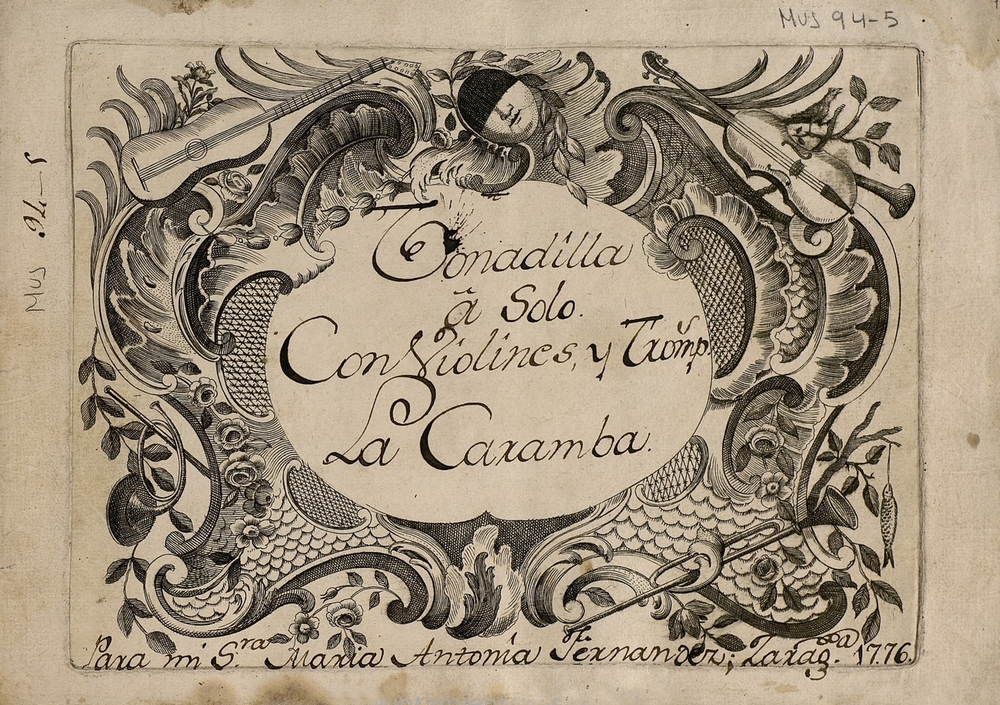 MUS 94-5
MUS 94-5
Tonadilla
â Solo.
Con Violines, y Tromp.s
La Caramba.
Para mi S.ra Maria Antonia Fernandez; Zarag.za 1776.